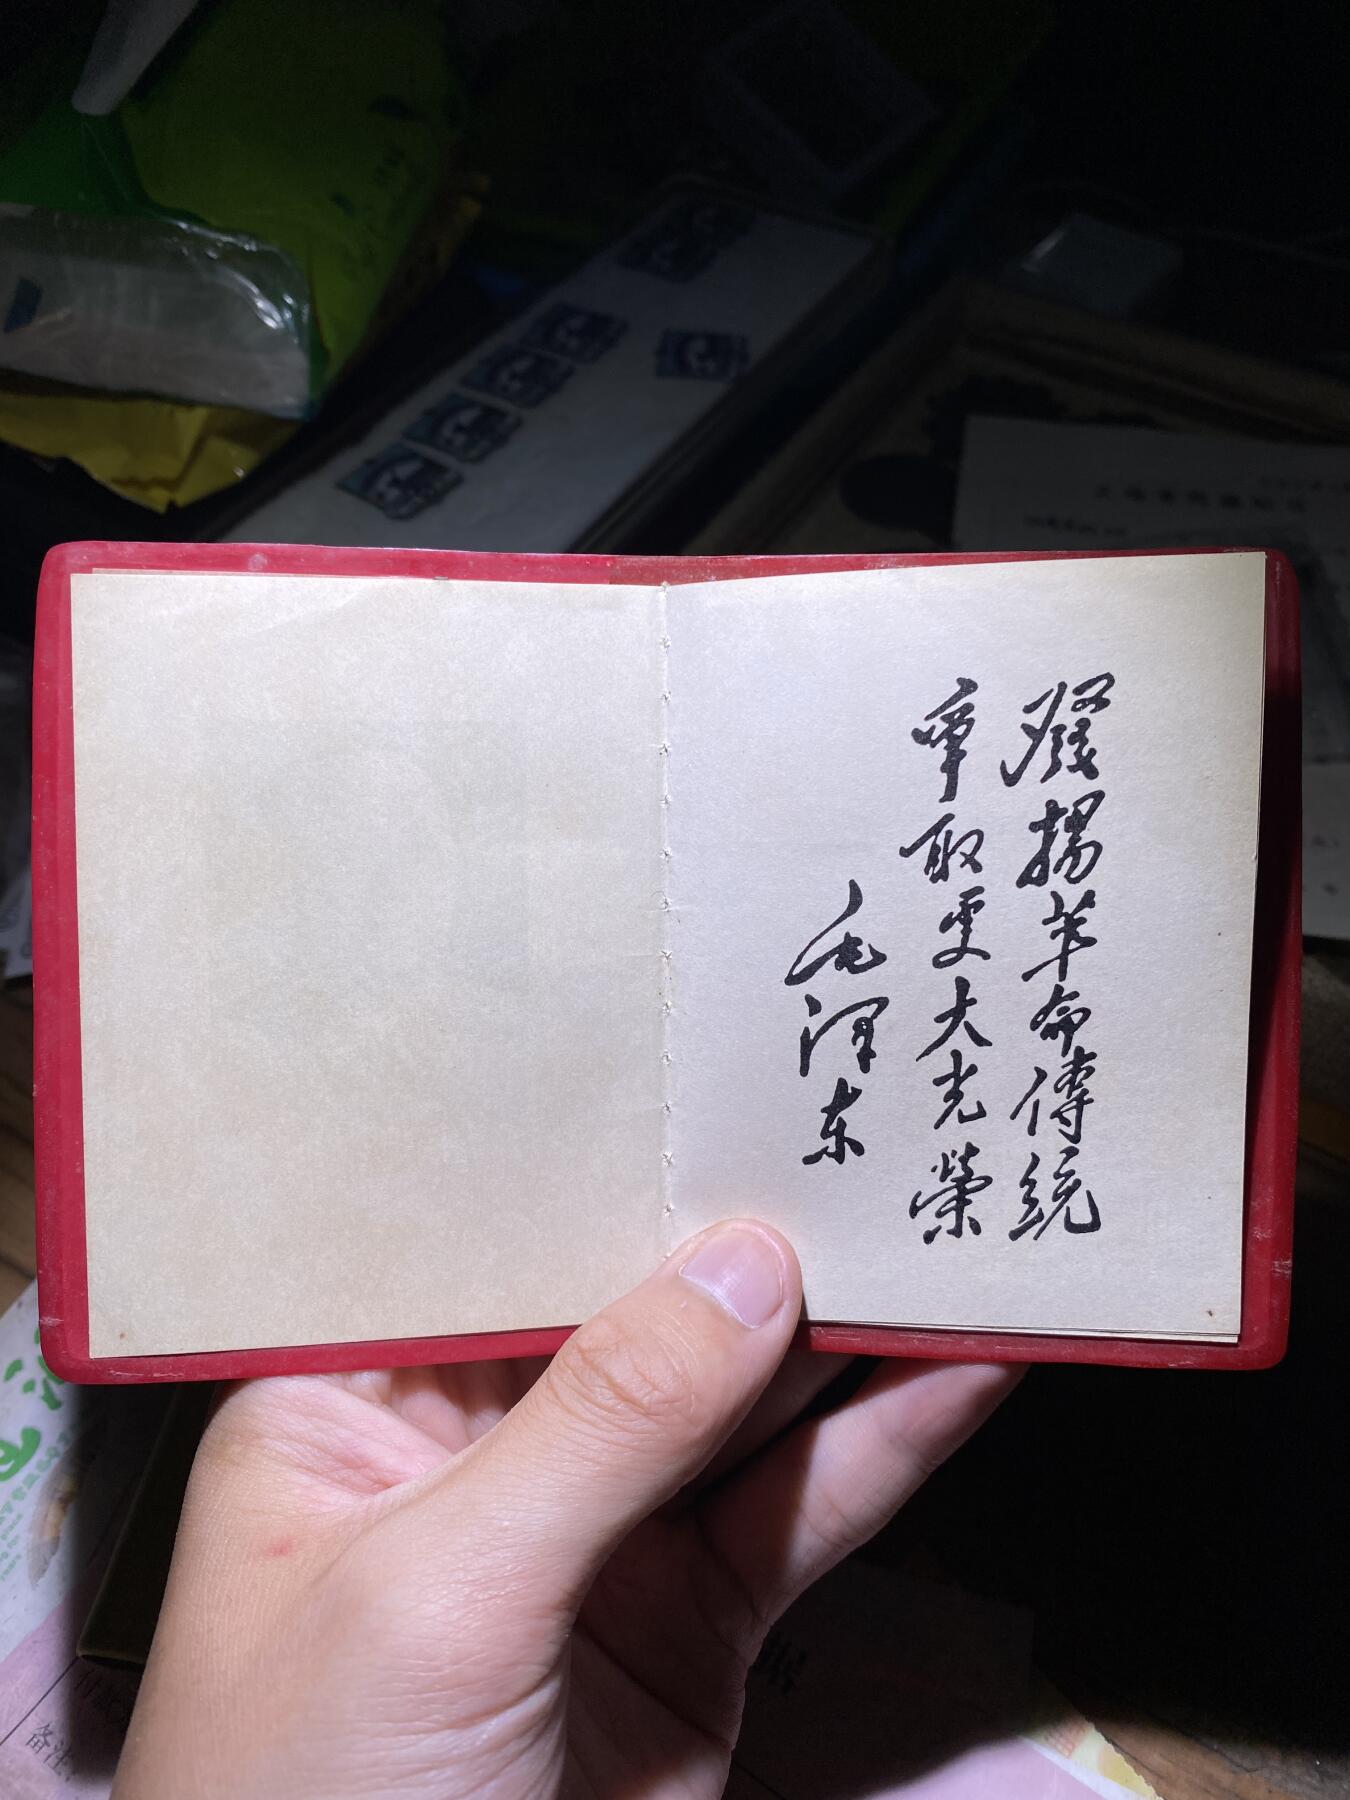 發揚革命傳統
爭取更大光榮
毛澤东
备注: